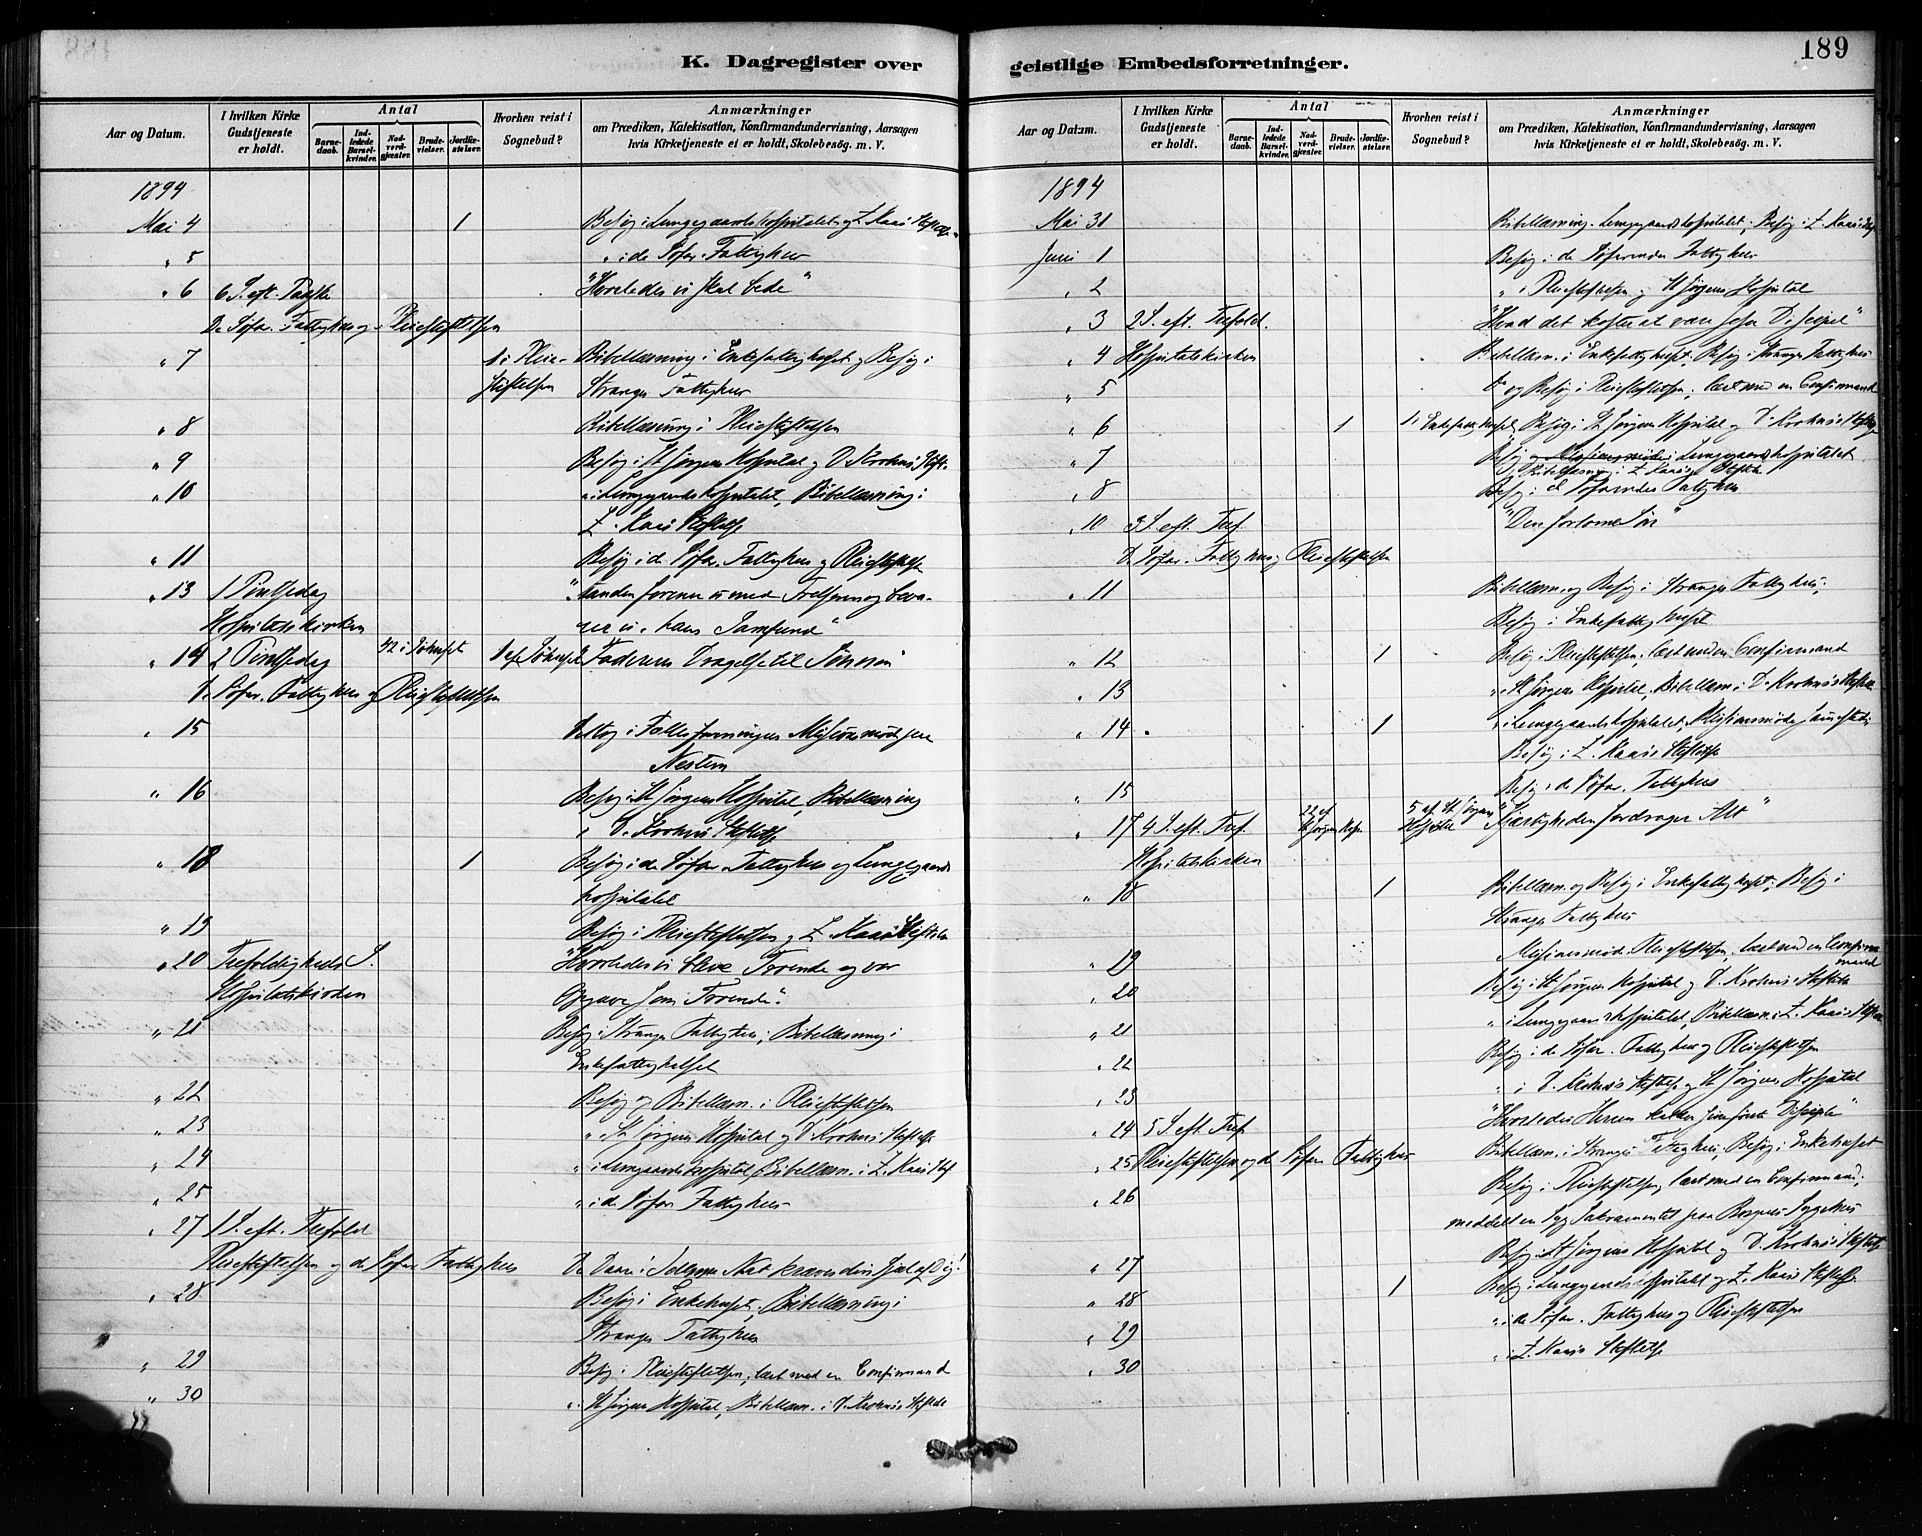 K. Dagregister over
Aar og Datum.
I hvilken Kirke Gudstjeneste er holdt.
Antal
Barnedaab.
Indledede Barselkvinder.
Nadverdgjæster.
Brudevielser.
Jordfæstelser.
Hvorhen reist i Sognebud?
Anmærkninger
om Prædiken, Katekisation, Konfirmandundervisning, Aarsagen
hvis Kirketjeneste ei er holdt, Skolebesøg. m. V.
1894
Mai 4 1 Besøg i Lungegaardshospitalet og Z. Kaas's
" 5 " i de Søfar. Fattighus
" 6 6 S. eft. Paaske "Hvorledes vi skal bede"
De Søfar. Fattighus og Pleiestiftelsen
" 7 1 i Pleie- Bibellæsning i Enkefattighuset og Besøg i
stiftelsen Stranges Fattighus
" 8 Bibellæsning i Pleiestiftelsen
" 9 Besøg i St Jørgens Hospital og D. Krohns Stift.
" 10 " i Lungegaardshospitalet, Bibellæsning i
Z. Kaas's Stiftelse
" 11 Besøg i de Søfar. Fattighus og Pleiestiftelsen
" 13 1 Pintsedag
Hospitalskirken hans Samfund"
" 14 2 Pintsedag 42 i 1 Faderens Dragelse til Sønnen
De Søfar. Fattighus og Pleiestiftelsen
" 15 Deltog i Fællesforeningens Missionsmøde
Nestun
" 16 Besøg i St Jørgens Hospital, Bibellæsning
i D. Krohns Stiftelse
" 18 1 Besøg i de Søfar. Fattighus og Lungegaards
hospitalet
" 19 Besøg i Pleiestiftelsen og Z. Kaas's Stiftelse
" 20 Trefoldigheds S. "Hvorledes vi bleve Troende og vor
Hospitalskirken Opgave som Troende".
" 21 Besøg i Stranges Fattighus, Bibellæsning i
Enkefattighuset
" 22 Besøg og Bibellæsn. i Pleiestiftelsen
" 23 " St Jørgens Hospital og D. Krohns Stiftelse
" 24 " i Lungegaardshospital, Bibellæsn. i Z. Kaas's Stif.
" 25 " i de Søfar. Fattighus
" 27 1 S. eft. Trefold.
Pleiestiftelsen og de Søfar. Fattighus
" 28 Besøg i Enkehuset, Bibellæsning i
Stranges Fattighus
" 29 Besøg i Pleiestiftelsen, læst med en Confirmand
" 30 " St Jørgens Hospital, Bibellæsn. i D. Krohns Stiftelse
geistlige Embedsforretninger.
189
Aar og Datum.
I hvilken Kirke Gudstjeneste er holdt.
Antal
Barnedaab.
Indledede Barselkvinder.
Nadverdgjæster.
Brudevielser.
Jordfæstelser.
Hvorhen reist i Sognebud?
Anmærkninger
om Prædiken, Katekisation, Konfirmandundervisning, Aarsagen
hvis Kirketjeneste ei er holdt, Skolebesøg. m. V.
1894
Mai 31 Bibellæsning. Lungegaardshospitalet, Besøg i Z. Kaas's Stif.
Juni 1 Besøg i de Søfarendes Fattighus
" 2 " i Pleiestiftelsen og St Jørgens Hospital
" 3 2 S. eft. Trefold. "Hvad det koster at være Jesu Discipel"
" 4 Hospitalskirken Bibellæsn. i Enkefattighuset, Besøg i Stranges Fattighus
" 5 og Besøg i Pleiestiftelsen, læst med en Confirmand
" 6 1 1 i Enkefattighuset Besøg i St Jørgens Hospital og D. Krohns Stiftelse
" 7 Besøg i Lungegaardshospitalet
og Bibellæsning i Z. Kaas's Stiftelse
" 8 Besøg i de Søfarendes Fattighus
" 10 3 S. eft. Tref. "Den fortabte Søn"
D. Søfar. Fattighus og Pleiestiftelsen
" 11 Bibellæsn. og Besøg i Stranges Fattighus;
Besøg i Enkefattighuset
" 12 1 Besøg i Pleiestiftelsen, læst med en Confirmand
" 13 " i St Jørgens Hospital, Bibellæsn. i D. Krohns Stiftelse
" 14 1 " i Lungegaardshospitalet, Missionsmøde
Besøg i Z. Kaas's Stiftelse
" 15 Besøg i de Søfar. Fattighus
" 17 4 S. eft. Tref. 22 af St Jørgens Hosp. 5 af St Jørgens Hospital "Kjærligheden fordrager Alt"
Hospitalskirken
" 18 1 Bibellæsn. og Besøg i Enkefattighuset; Besøg i
Stranges Fattighus
" 19 Missionsmøde. Pleiestiftelsen, læst med en Confirmand
" 20 Besøg i St Jørgens Hospital og D. Krohns Stiftelse
" 21 " i Lungegaardshospitalet, Bibellæsn. i Z. Kaas's Stiftelse
" 22 Besøg i de Søfar. Fattighus og Pleiestiftelsen
" 23 " i D. Krohns Stiftelse og St Jørgens Hospital
" 24 5 S. eft. Tref. "Hvorledes Herren kalder sine første Disciple"
" 25 Pleiestiftelsen og de Søfar. Fattighus Bibellæsn. i Stranges Fattighus, Besøg i Enkehuset
" 26 Besøg i Pleiestiftelsen, læst med en Confirmand;
meddelt en Syg Sakramentet paa Bergens Sygehus
" 27 Besøg i St Jørgens Hospital og D. Krohns Stiftelse
" 28 1 Besøg i Lungegaardshospitalet og Z. Kaas's Stiftelse
" 29 " i de Søfar. Fattighus og Pleiestiftelsen
" 30 " i Z. Kaas's Stiftelse